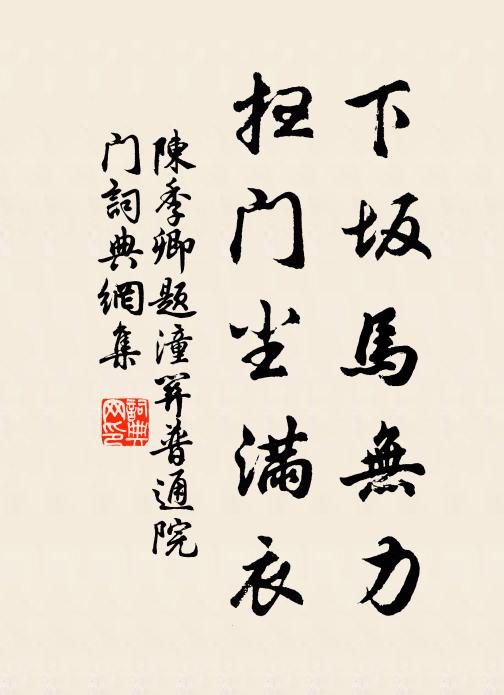 下坂馬無力
扫门尘满衣
陳季卿題潼関普通院
门詞典網集
詞典
网印